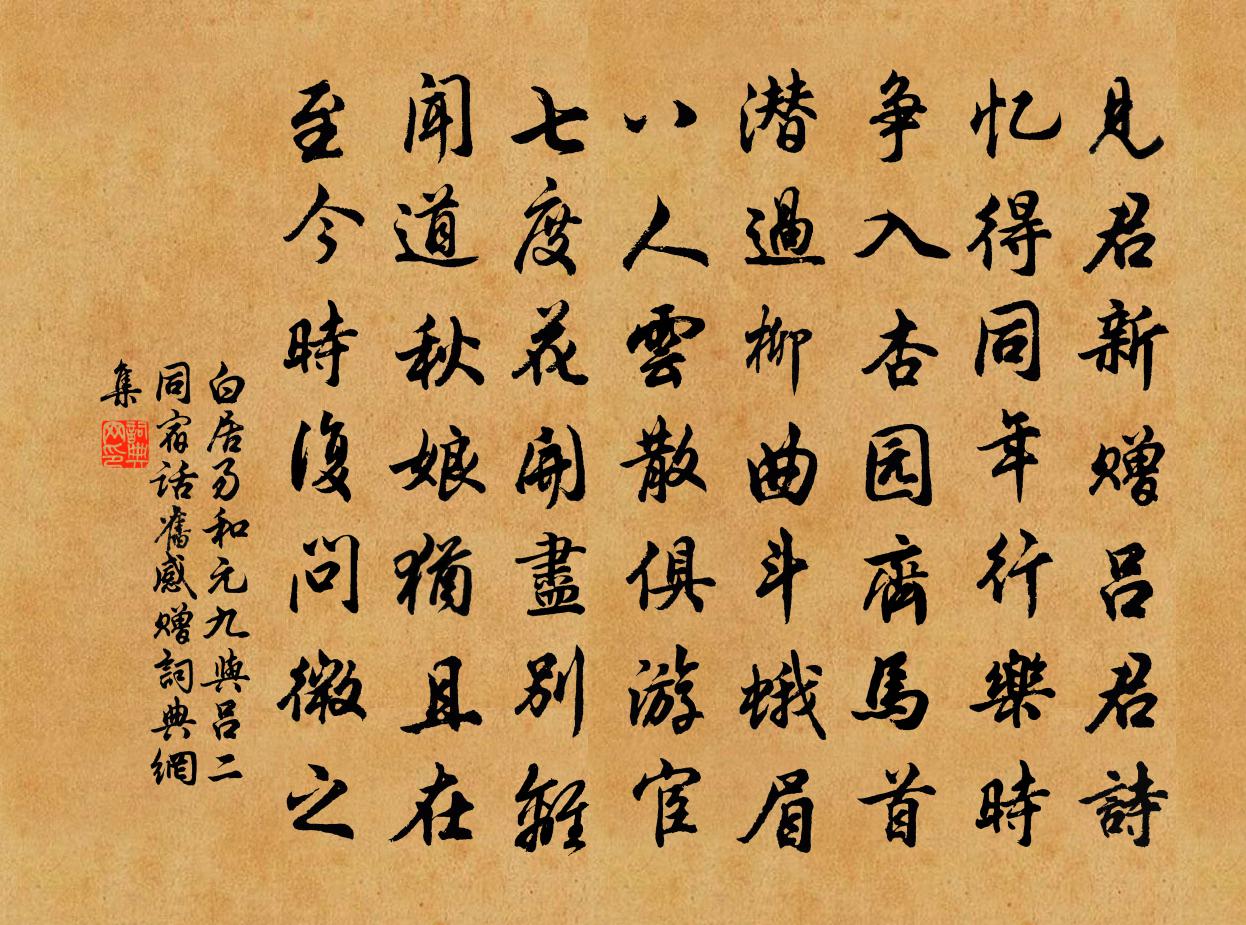 見君新赠吕君詩
忆得同年行樂時
争入杏园齊馬首
潜過柳曲斗蛾眉
八人雲散俱游宦
七度花開盡别離
闻道秋娘猶且在
至今時復問微之
白居易和元九與吕二
同宿話舊感赠詞典網
集
詞典
网印